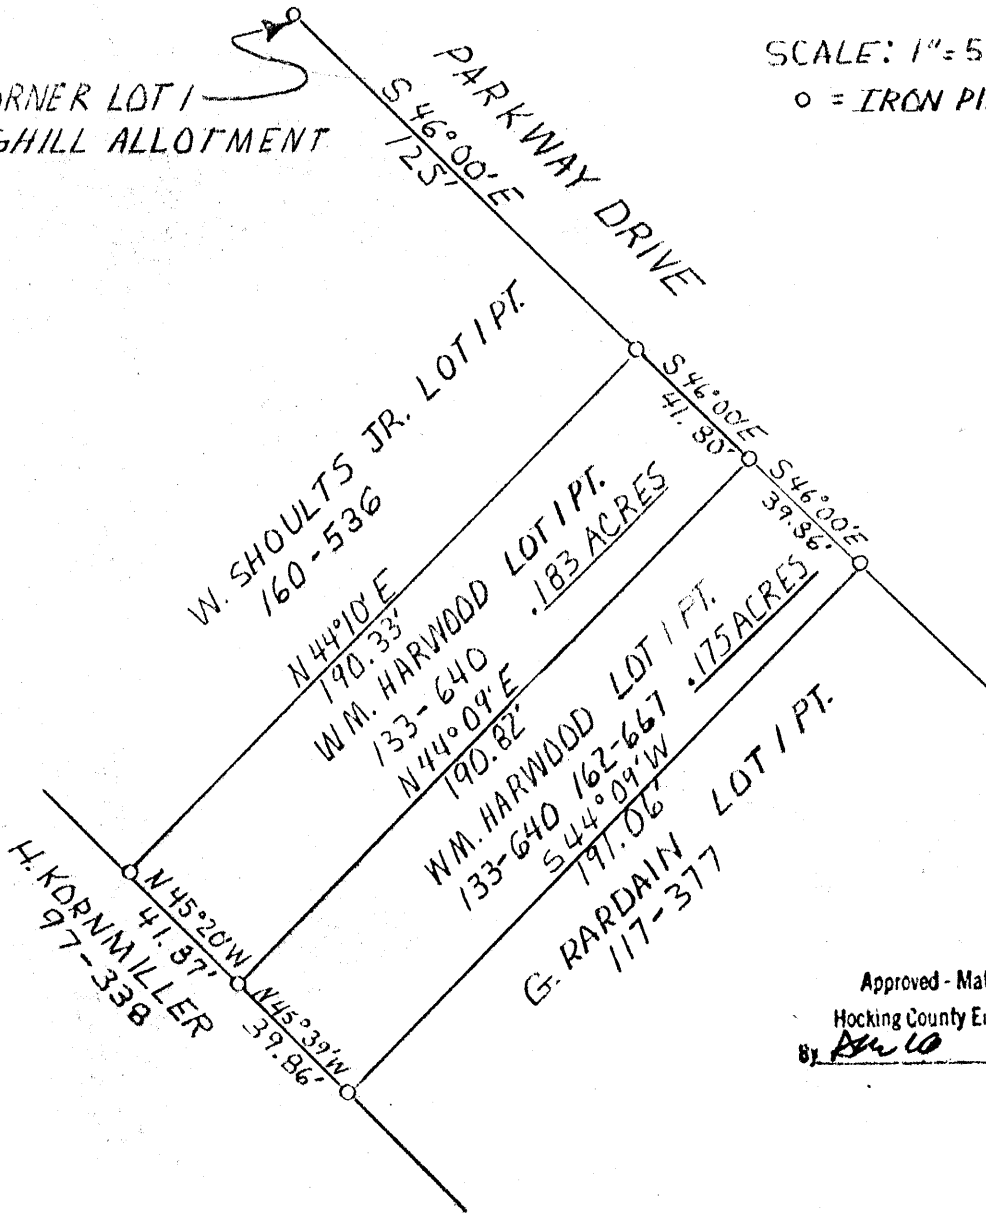 SCALE: 1"= 5
o = IRON PI
ORNER LOT 1
GHILL ALLOTMENT
PARKWAY DRIVE
S 46°00' E
125'
S 46°00' E
41.80'
S 46°00' E
39.86'
W. SHOULTS JR. LOT 1 PT.
160-536
N 44°10' E
190.33'
WM. HARWOOD LOT 1 PT.
133-640
.183 ACRES
N 44°09' E
190.82'
WM. HARWOOD LOT 1 PT.
133-640 162-667 .175 ACRES
S 44°09' W
191.06'
G. RARDAIN LOT 1 PT.
117-377
N 45°20' W
41.87'
H. KORNMILLER
97-338
N 45°39' W
39.86'
Approved - Mat
Hocking County E
By